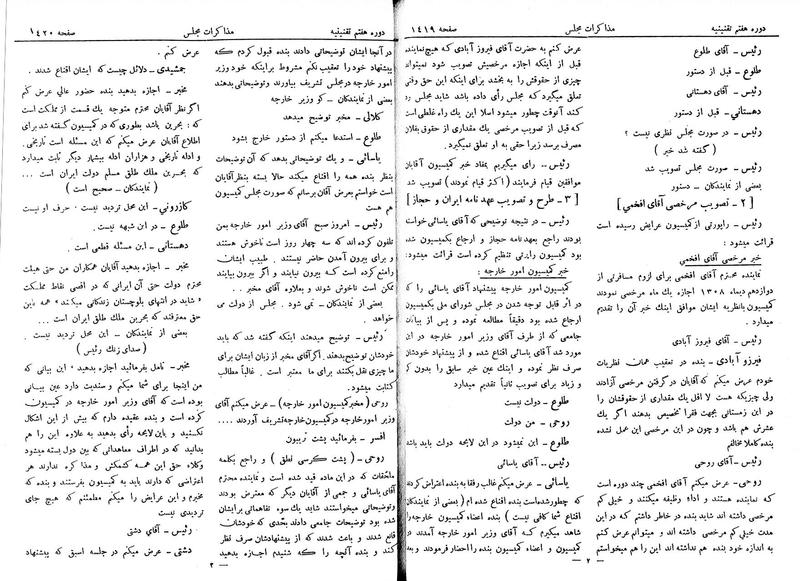 دوره هفتم تقنینیه
مذاکرات مجلس
صفحه ۱۴۱۹
رئیس ــ آقای طلوع
طلوع ــ قبل از دستور
رئیس ــ آقای دهستانی
دهستانی ــ قبل از دستور
رئیس ــ در صورت مجلس نظری نیست ؟
( گفته شد خیر )
رئیس ــ صورت مجلس تصویب شد
بعضی از نمایندگان ــ دستور
[ ۲ ــ تصویب مرخصی آقای افخمی ]
رئیس ــ راپورتی از کمیسیون عرایض رسیده است
قرائت میشود :
خبر مرخصی آقای افخمی
نماینده محترم آقای افخمی برای لزوم مسافرتی از
دوازدهم دیماه ۱۳۰۸ اجازه یك ماه مرخصی نمودند
کمیسیون بانظریه ایشان موافق اینك خبر آن را تقدیم
میدارد .
رئیس ــ آقای فیروز آبادی
فیروز آبادی ــ بنده در تعقیب همان نظریات
خودم عرض میکنم که آقایان در گرفتن مرخصی آزادند
ولی چیزیکه هست لا اقل یك مقداری از حقوقشان را
در این زمستانی بجهت فقرا تخصیص بدهند اگر یك
عشرش هم باشد و چون در این مرخصی این عمل نشده
بنده کاملا مخالفم
رئیس ــ آقای روحی
روحی ــ عرض میکنم آقای افخمی چند دوره است
که نماینده هستند و اداء وظیفه میکنند و خیلی کم
مرخصی داشته اند شاید بنده در خاطر داشتم که در
مدت خیلی کم مرخصی داشته اند و میتوانم عرض کنم
به اندازه خود بنده هم نداشته اند این را هم میخواستم
عرض کنم به حضرت آقای فیروز آبادی که هیچ نماینده
قبل از اینکه اجازه مرخصیش تصویب شود نمیتواند
چیزی از حقوقش را به بخشد برای اینکه این حق وقتی
تعلق میگیرد که مجلس رأی داده باشد شاید مجلس رد
کند آنوقت چطور میشود اصلا این یك راه غلطی است
که قبل از تصویب مرخصی یك مقداری از حقوق بفلان
مصرف برسد زیرا حقی به او تعلق نمیگیرد .
رئیس .. رای میگیریم بمفاد خبر کمیسیون آقایان
موافقین قیام فرمایند ( اکثر قیام نمودند ) تصویب شد
[ ۳ ــ طرح و تصویب عهد نامه ایران و حجاز ]
رئیس ــ در نتیجه توضیحی که آقای یاسائی خواسته
بودند راجع بعهد نامه حجاز و ارجاع بکمیسیون شده
بود کمیسیون راپرتی تنظیم کرده است قرائت میشود :
خبر کمیسیون امور خارجه :
کمیسیون امور خارجه پیشنهاد آقای یاسائی را که
در اثر قابل توجه شدن در مجلس شورای ملی بکمیسیون
ارجاع شده بود دقیقاً مطالعه نموده و پس از بیانات
جامعی که از طرف آقای وزیر امور خارجه در این
مورد شد آقای یاسائی اقناع شده و از پیشنهاد خودشان
صرف نظر نموده و اینك عین خبر سابق را بدون کم
و زیاد برای تصویب ثانیاً تقدیم میدارد
طلوع ــ دولت نیست
روحی ــ من دولت
طلوع ــ این نمیشود در این لایحه دولت باید باشد
رئیس .. آقای یاسائی
یاسائی ــ عرض میکنم غالب رفقا به بنده اعتراض کردند
که چطور شده است بنده اقناع شده ام ( بعضی از نمایندگان
اقناع شما کافی نیست ) بنده اعضاء کمیسیون خارجه را
شاهد میگیرم که آقای وزیر امور خارجه آمدند در
کمیسیون و اعضاء کمیسیون بنده را احضار فرمودند و بعد
ــ ۲ ــ
دوره هفتم تقنینیه
مذاکرات مجلس
صفحه ۱۴۲۰
در آنجا ایشان توضیحاتی دادند بنده قبول کردم که
پیشنهاد خود را تعقیب نکنم مشروط براینکه خود وزیر
امور خارجه در مجلس تشریف بیاورند و توضیحاتی بدهند
بعضی از نمایندگان ــ کو وزیر خارجه
کلالی ــ مخبر توضیح میدهد
طلوع ــ استدعا میکنم از دستور خارج بشود
یاسائی ــ و یك توضیحاتی بدهد که آن توضیحات
بنظر بنده همه را اقناع میکند حالا بسته بنظر آقایان
است خواستم بعرض آقان برسانم که صورت مجلس کمیسیون
هم هست
رئیس ــ امروز صبح آقای وزیر امور خارجه بمن
تلفون کرده اند که سه چهار روز است ناخوش هستند
و برای بیرون آمدن حاضر نیستند . طبیب ایشان
را منع کرده است که بیرون نیایند و اگر بیرون بیایند
ممکن است ناخوش شوند و بعلاوه آقای مخبر ..
بعضی از نمایندگان ــ نمی شود . مجلس از دولت می
خواهد .
رئیس ــ توضیح میدهند اینکه گفته شد که باید
خودشان توضیح بدهند . اگر آقای مخبر از زبان ایشان برای
ما چیزی نقل بکنند برای ما معتبر است . غالباً مطالب
کتابت میشود .
روحی ( مخبر کمیسیون امور خارجه ) ــ عرض میکنم آقای
وزیر امور خارجه در کمیسیون خارجه تشریف آوردند ...
افسر ــ بفرمائید پشت تریبون
روحی ــ ( پشت کرسی نطق ) و راجع بکلمه
ملحقات که در این ماده قید شده است و نماینده محترم
آقای یاسائی و جمعی از آقایان دیگر که معترض بودند
وتوضیحاتی میخواستند شاید یك سوء تفاهماتی برایشان
شده بود توضیحات جامعی دادند بحّدی که خودشان
قانع شدند و باعث شدند که از پیشنهادشان صرف نظر
کنند و بنده آنچه را که شنیدم اجازه بدهید
عرض کنم .
جمشیدی ــ دلائل چیست که ایشان اقناع شدند .
مخبر ــ اجازه بدهید بنده حضور عالی عرض کنم
اگر نظر آقایان محترم متوجه یك قسمت از مملکت است
که : بحرین باشد بطوری که در کمیسیون گفته شد برای
اطلاع آقایان عرض میکنم که این مسئله است تاریخی .
و ادله تاریخی و هزاران ادله بیشمار دیگر ثابت میدارد
که بحرین ملك طلق مسلم دولت ایران است ...
( نمایندگان ــ صحیح است )
کازرونی ــ این محل تردید نیست . حرف او نیست
طلوع ــ در این شبهه نیست .
دهستانی ــ این مسئله قطعی است .
مخبر ــ اجازه بدهید آقایان همکاران من حتی هیئت
محترم دولت حتی آن ایرانی که در اقصی نقاط مملکت
شاید در انتهای بلوچستان زندگانی میکند ، همه باین
حق معترفند که بحرین ملك طلق ایران است ...
بعضی از نمایندگان ــ این محل تردید نیست .
( صدای زنگ رئیس )
مخبر ــ تامل بفرمائید اجازه بدهید ، این بیانی که
من اینجا برای شما میکنم و سندیت دارد عین بیانی
بوده است که آقای وزیر امور خارجه در کمیسیون
کرده است و بنده عقیده دارم که بیش از این اشکال
نکنید و باین لایحه رأی بدهید به علاوه این را هم
بدانید که در اطراف معاهداتی که بین دول بسته میشود
وکلاء حق این همه کشمکش و مذا کره ندارند هر
اعتراضی که دارند باید به کمیسیون بفرستند و بنده که
مخبرم و این عرایض را میکنم مطمئنم که هیچ جای
تردیدی نیست
رئیس ــ آقای دشتی
دشتی ــ عرض میکنم در جلسه اسبق که پیشنهاد
ــ ۳ ــ